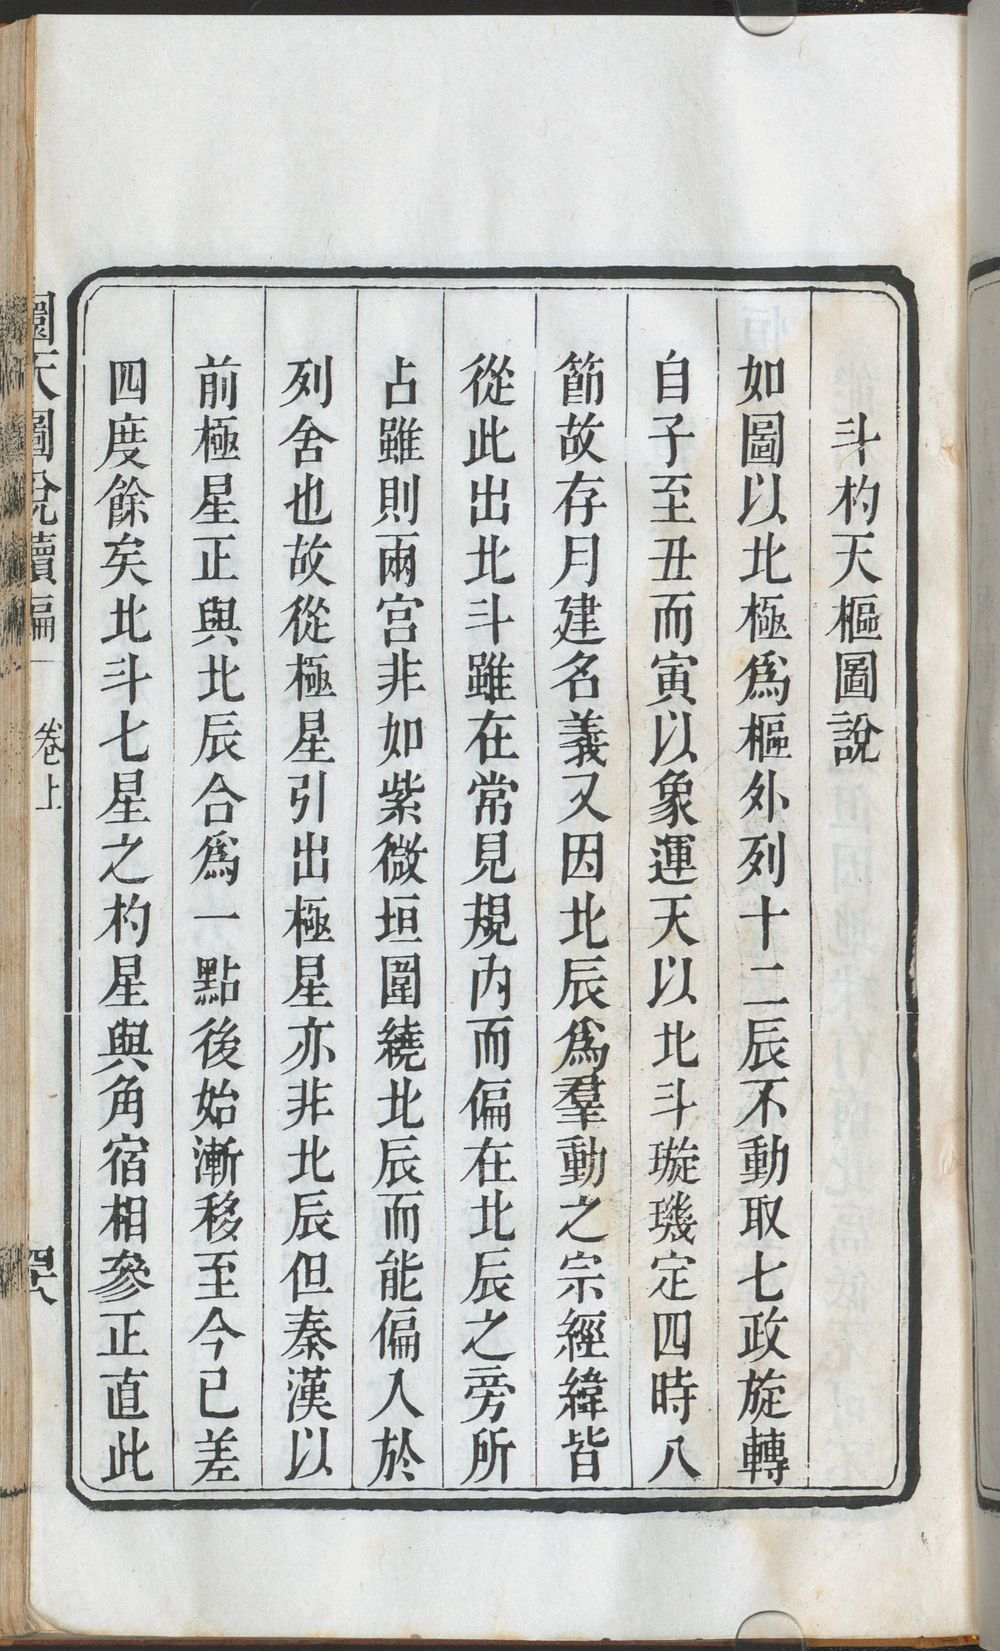 斗杓天樞圖說
如圖以北極爲樞外列十二辰不動取七政旋轉
自子至丑而寅以象運天以北斗璇璣定四時八
節故存月建名義又因北辰爲羣動之宗經緯皆
從此出北斗雖在常見規內而偏在北辰之旁所
占雖則兩宮非如紫微垣圍繞北辰而能偏入於
列舍也故從極星引出極星亦非北辰但秦漢以
前極星正與北辰合爲一點後始漸移至今已差
四度餘矣北斗七星之杓星與角宿相參正直此
圜天圖說續編 卷上